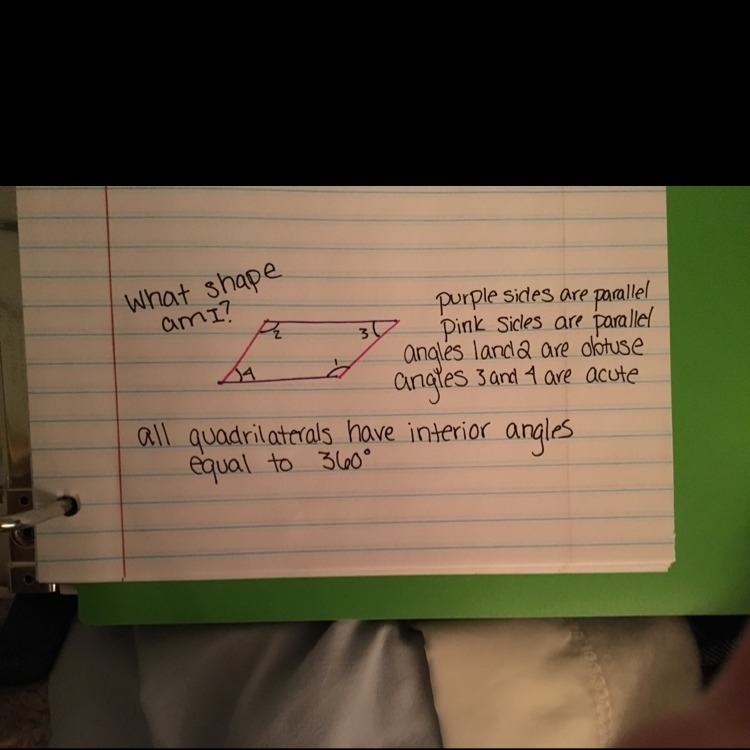 What shape
am I?
2
3
4
1
purple sides are parallel
pink sides are parallel
angles 1 and 2 are obtuse
angles 3 and 4 are acute
all quadrilaterals have interior angles
equal to 360°